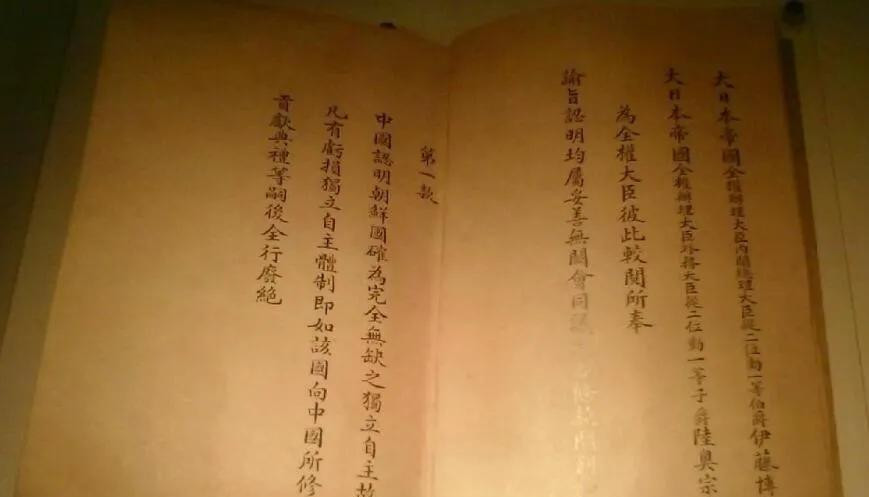 大日本帝國全權辦理大臣內閣總理大臣從二位勳一等伯爵伊藤博
大日本帝國全權辦理大臣外務大臣從二位勳一等子爵陸奧宗
為全權大臣彼此較閱所奉
諭旨認明均屬妥善無闕會同議
第一款
中國認明朝鮮國確為完全無缺之獨立自主故
凡有虧損獨立自主體制即如該國向中國所修
貢獻典禮等嗣後全行廢絕